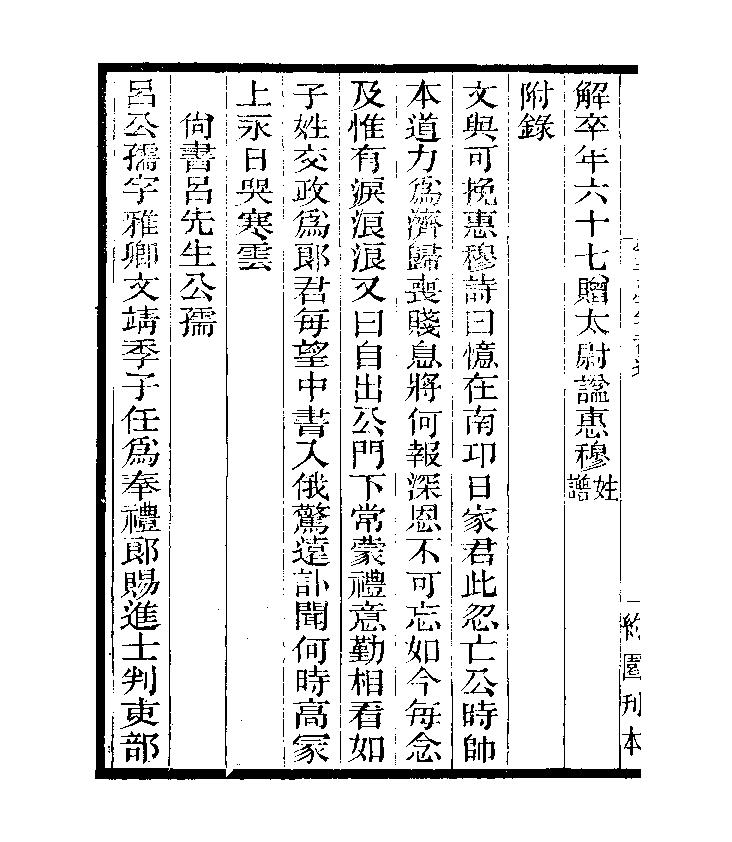 解卒年六十七贈太尉諡惠穆姓譜
附錄
文與可挽惠穆詩曰憶在南卭日家君此忽亡公時帥
本道力爲濟歸喪賤息將何報深恩不可忘如今每念
及惟有淚浪浪又曰自出公門下常蒙禮意勤相看如
子姓交政爲郞君每望中書入俄驚遠訃聞何時高冢
上永日哭寒雲
尙書呂先生公孺
呂公孺字雅卿文靖季子任爲奉禮郞賜進士判吏部
約園刊本